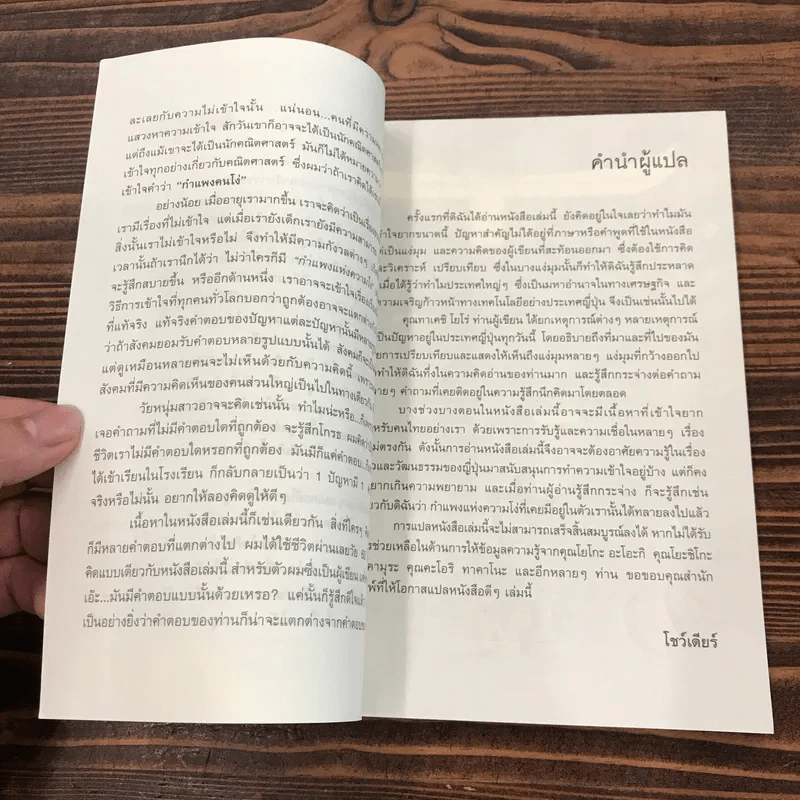 ละเลยกับความไม่เข้าใจนั้น แน่นอน...คนที่มีความ
แสวงหาความเข้าใจ สักวันเขาก็อาจจะได้เป็นนักคณิตศาสตร์
แต่ถึงแม้เขาจะได้เป็นนักคณิตศาสตร์ มันก็ไม่ได้หมายความ
เข้าใจทุกอย่างเกี่ยวกับคณิตศาสตร์ ซึ่งผมว่าถ้าเราคิดได้
เข้าใจคำว่า “กำแพงคนโง่”
อย่างน้อย เมื่ออายุเรามากขึ้น เราจะคิดว่าเป็นเรื่อง
เรามีเรื่องที่ไม่เข้าใจ แต่เมื่อเรายังเด็กเรายังมีความสามารถ
สิ่งนั้นเราไม่เข้าใจหรือไม่ จึงทำให้มีความกังวลต่างๆ
เวลานั้นถ้าเรานึกได้ว่า ไม่ว่าใครก็มี “กำแพงแห่งความโง่”
จะรู้สึกสบายขึ้น หรืออีกด้านหนึ่ง เราอาจจะเข้าใจเรื่อง
วิธีการเข้าใจที่ทุกคนทั่วโลกบอกว่าถูกต้องอาจจะแตกต่าง
ที่แท้จริง แท้จริงคำตอบของปัญหาแต่ละปัญหานั้นมี
ว่าถ้าสังคมยอมรับคำตอบหลายรูปแบบนั้นได้ สังคมก็
แต่ดูเหมือนหลายคนจะไม่เห็นด้วยกับความคิดนี้ เพราะ
สังคมที่มีความคิดเห็นของคนส่วนใหญ่เป็นไปในทางเดียวกัน
วัยหนุ่มสาวอาจจะคิดเช่นนั้น ทำไมน่ะหรือ...
เจอคำถามที่ไม่มีคำตอบใดที่ถูกต้อง จะรู้สึกโกรธ ผมคิด
ชีวิตเราไม่มีคำตอบใดหรอกที่ถูกต้อง มันมีก็แค่คำตอบ
ได้เข้าเรียนในโรงเรียน ก็กลับกลายเป็นว่า 1 ปัญหามี 1
จริงหรือไม่นั้น อยากให้ลองคิดดูให้ดีๆ
เนื้อหาในหนังสือเล่มนี้ก็เช่นเดียวกัน สิ่งที่ใครๆ
ก็มีหลายคำตอบที่แตกต่างไป ผมได้ใช้ชีวิตผ่านเลยวัย
คิดแบบเดียวกับหนังสือเล่มนี้ สำหรับตัวผมซึ่งเป็นผู้เขียน
เอ๊ะ...มันมีคำตอบแบบนั้นด้วยเหรอ? แค่นั้นก็รู้สึกดีใจแล้ว
เป็นอย่างยิ่งว่าคำตอบของท่านก็น่าจะแตกต่างจากคำตอบของ
คำนำผู้แปล
ครั้งแรกที่ดิฉันได้อ่านหนังสือเล่มนี้ ยังคิดอยู่ในใจเลยว่าทำไมมัน
ยากขนาดนี้ ปัญหาสำคัญไม่ได้อยู่ที่ภาษาหรือคำพูดที่ใช้ในหนังสือ
เป็นแง่มุม และความคิดของผู้เขียนที่สะท้อนออกมา ซึ่งต้องใช้การคิด
และวิเคราะห์ เปรียบเทียบ ซึ่งในบางแง่มุมนั้นก็ทำให้ดิฉันรู้สึกประหลาด
เมื่อได้รู้ว่าทำไมประเทศใหญ่ๆ ซึ่งเป็นมหาอำนาจในทางเศรษฐกิจ และ
ความเจริญก้าวหน้าทางเทคโนโลยีอย่างประเทศญี่ปุ่น จึงเป็นเช่นนั้นไปได้
คุณทาเคชิ โยโร่ ท่านผู้เขียน ได้ยกเหตุการณ์ต่างๆ หลายเหตุการณ์
เป็นปัญหาอยู่ในประเทศญี่ปุ่นทุกวันนี้ โดยอธิบายถึงที่มาและที่ไปของมัน
การเปรียบเทียบและแสดงให้เห็นถึงแง่มุมหลายๆ แง่มุมที่กว้างออกไป
ทำให้ดิฉันที่งงในความคิดอ่านของท่านมาก และรู้สึกกระจ่างต่อคำถาม
คำถามที่เคยติดอยู่ในความรู้สึกนึกคิดมาโดยตลอด
บางช่วงบางตอนในหนังสือเล่มนี้อาจจะมีเนื้อหาที่เข้าใจยาก
หรับคนไทยอย่างเรา ด้วยเพราะการรับรู้และความเชื่อในหลายๆ เรื่อง
ไม่ตรงกัน ดังนั้นการอ่านหนังสือเล่มนี้จึงอาจจะต้องอาศัยความรู้ในเรื่อง
และวัฒนธรรมของญี่ปุ่นมาสนับสนุนการทำความเข้าใจอยู่บ้าง แต่ก็คง
ยากเกินความพยายาม และเมื่อท่านผู้อ่านรู้สึกกระจ่าง ก็จะรู้สึกเช่น
ยวกับดิฉันว่า กำแพงแห่งความโง่ที่เคยมีอยู่ในตัวเรานั้นได้ทลายลงไปแล้ว
การแปลหนังสือเล่มนี้จะไม่สามารถเสร็จสิ้นสมบูรณ์ลงได้ หากไม่ได้รับ
รช่วยเหลือในด้านการให้ข้อมูลความรู้จากคุณโยโกะ อะโอะกิ คุณโยะชิโกะ
คามุระ คุณคะโอริ ทาคาโนะ และอีกหลายๆ ท่าน ขอขอบคุณสำนัก
พ์ที่ให้โอกาสแปลหนังสือดีๆ เล่มนี้
โชว์เดียร์